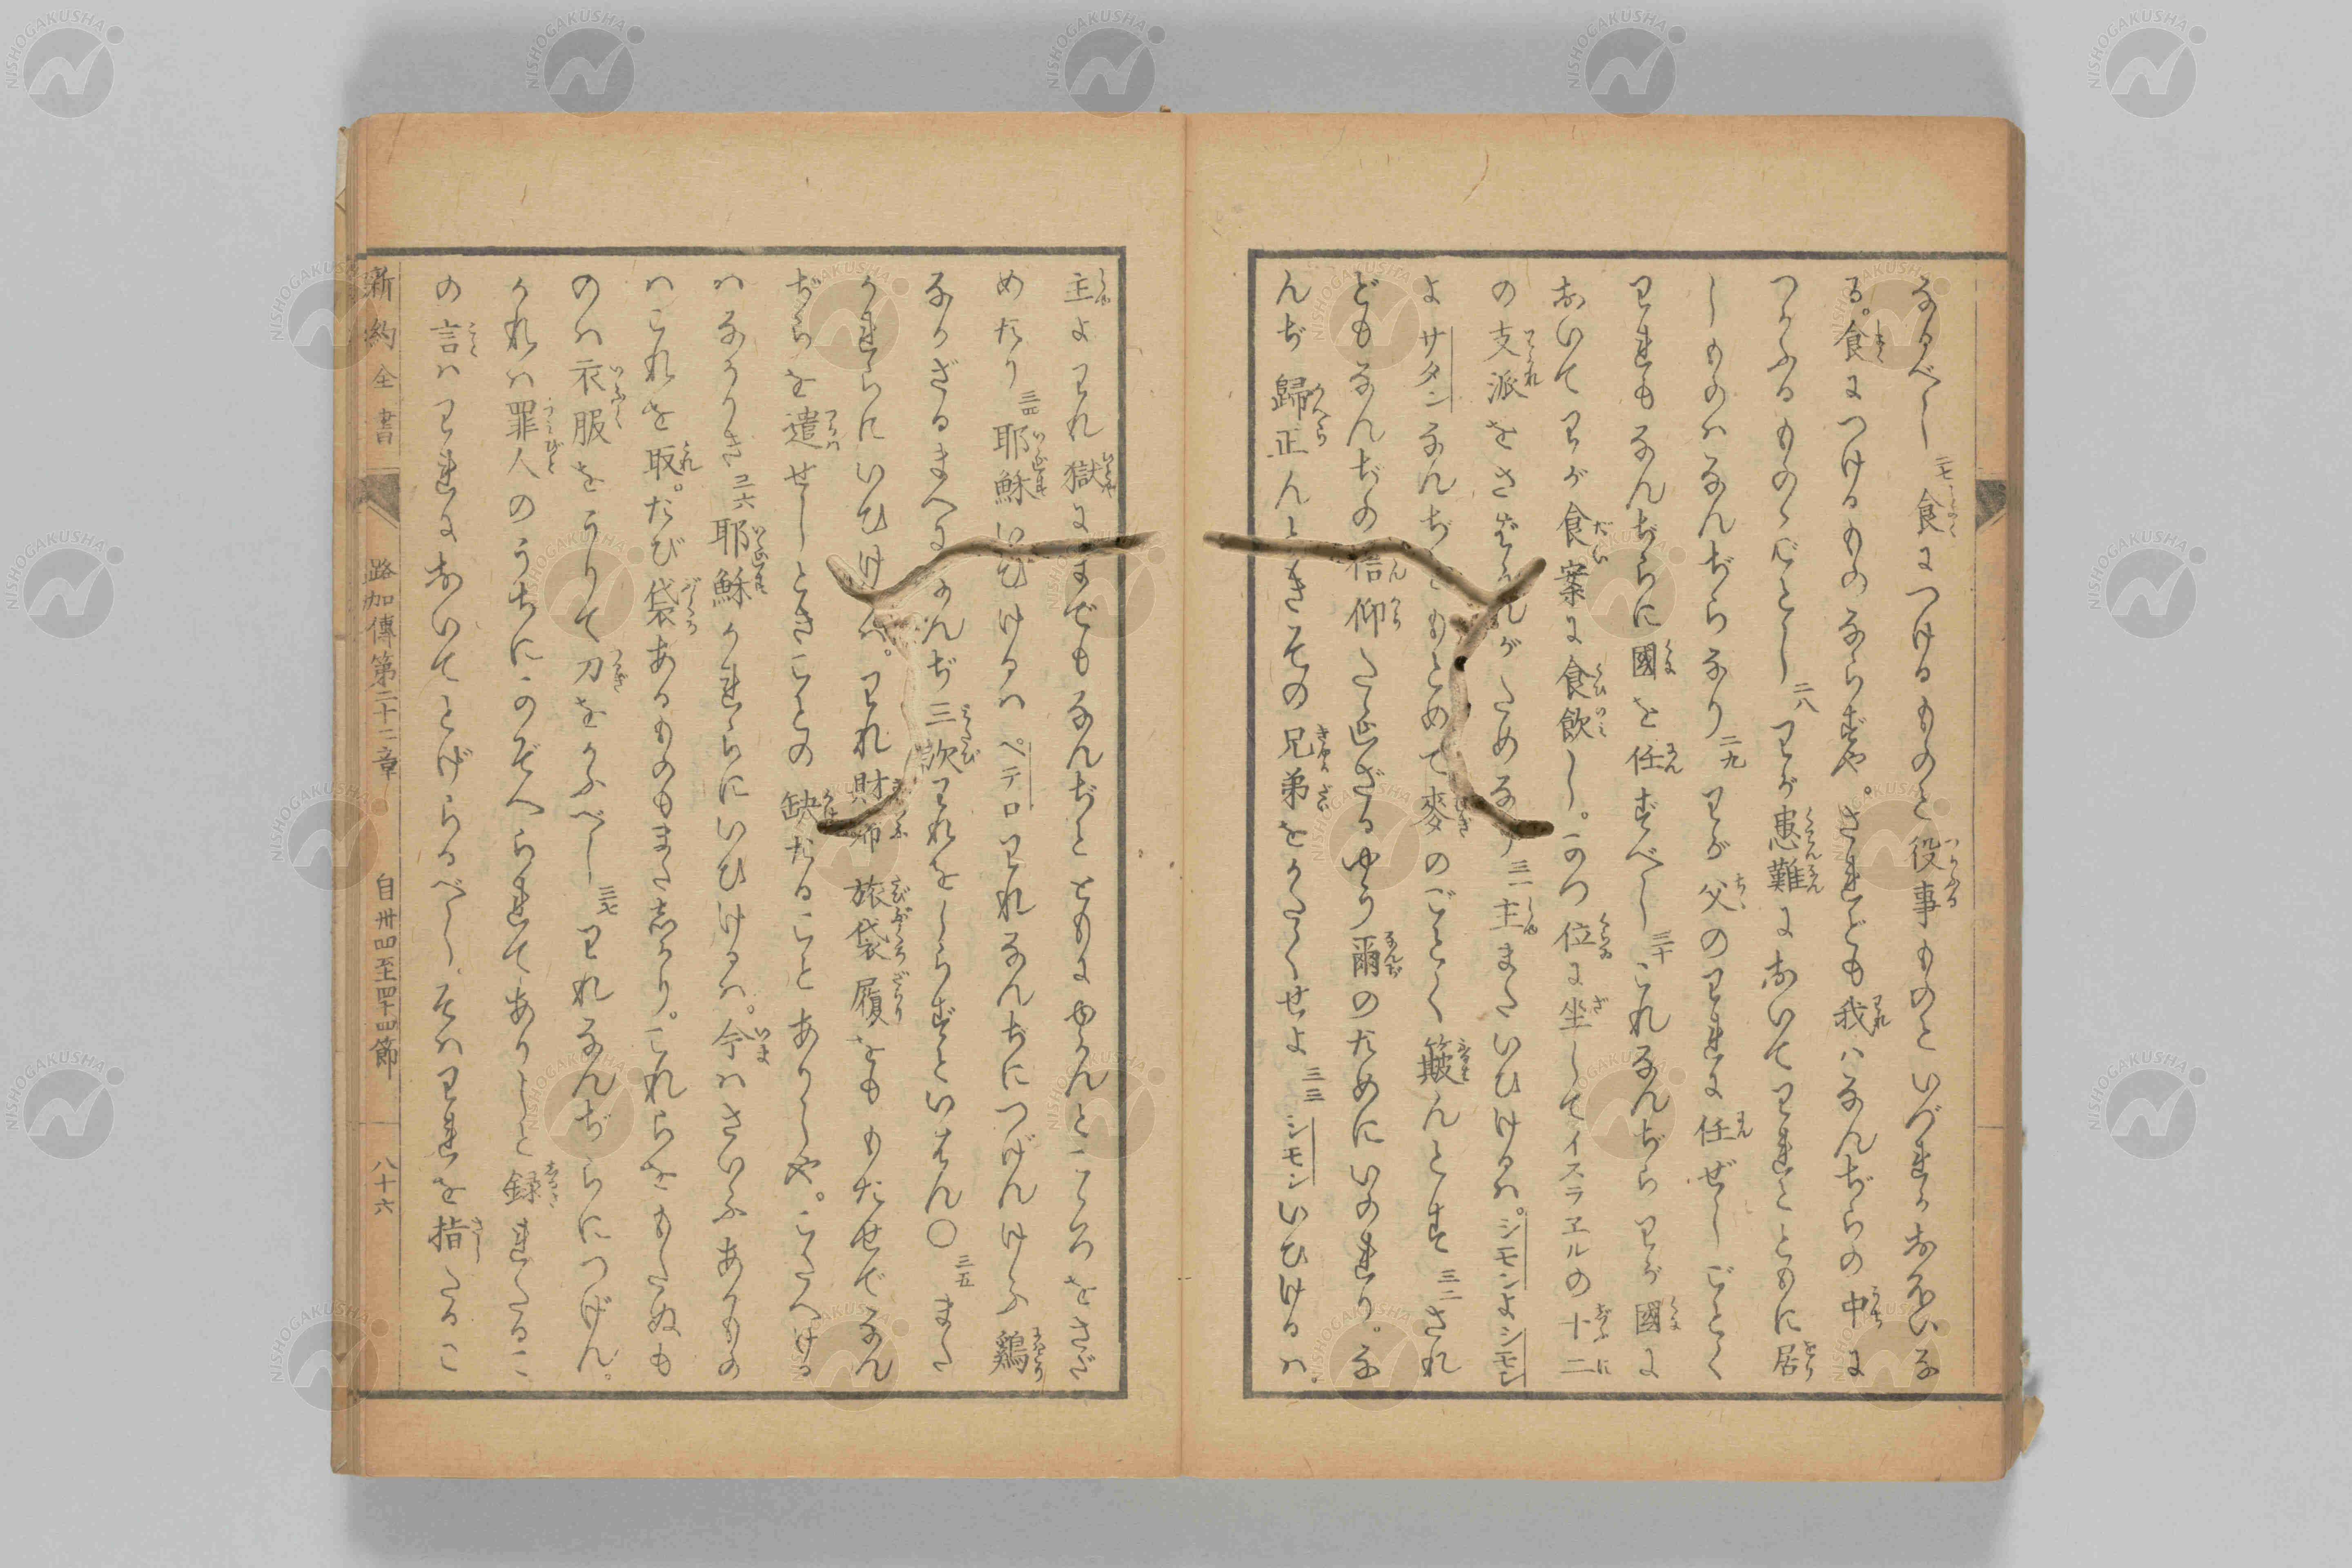 なるべし 二七 食につけるものと役事ものといづれかおほいな
る。食につけるものならずや。されども我ハなんぢらの中に
つかふるものゝごとし 二八 わが患難においてわれとともに居
しものハなんぢらなり 二九 わが父のわれに任ぜしごとく
われもなんぢらに國を任ずべし 三十 これなんぢらわが國に
おいてわが食案に食飲し。かつ位に坐してイスラヱルの十二
の支派をさばかんがためなり 三一 主またいひけるハ。シモンよシモン
よサタンなんぢをもとめて麥のごとく簸んとす 三二 され
どもなんぢの信仰たえざるやう爾のためにいのれり。な
んぢ歸正んときその兄弟をかたくせよ 三三 シモンいひけるハ。
主よわれ獄にまでもなんぢとともにゆかんとこゝろをさだ
めたり 三四 耶穌いひけるハペテロわれなんぢにつげんけふ鷄
なかざるまへになんぢ三次われをしらずといはん〇 三五 また
かれらにいひけるハ。われ財布旅袋履をももたせでなん
ぢらを遣せしときことの缺たることありしや。こたへける
ハなかりき 三六 耶穌かれらにいひけるハ。今ハさいふあるもの
ハこれを取。たび袋あるものもまた志かり。これらをもたぬも
のハ衣服をうりて刀をかふべし 三七 われなんぢらにつげん。
かれハ罪人のうちにかぞへられてありしと録れたるこ
の言ハわれにおいてとげらるべし。そハわれを指たるこ
新約全書 路加傳第二十二章 自卅四至四十四節 八十六